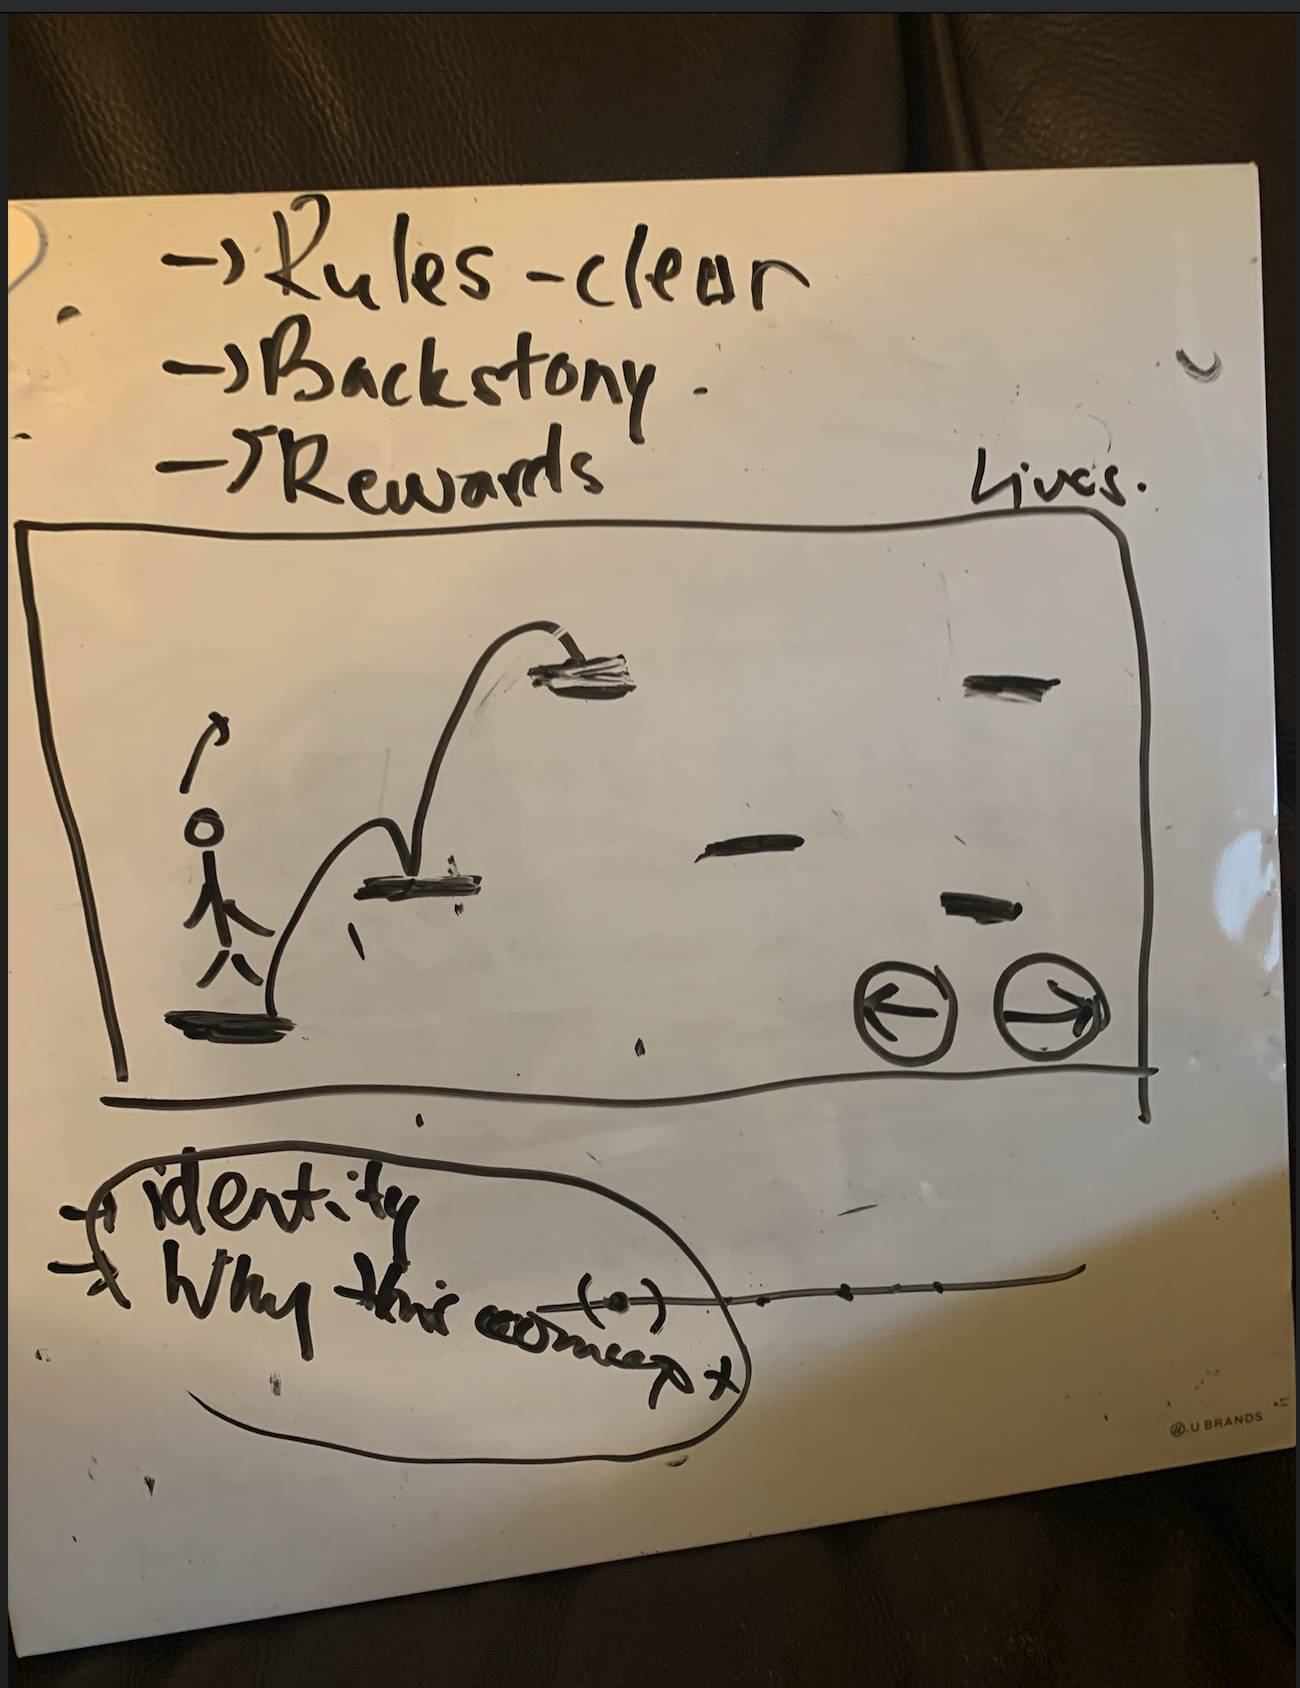 → Rules - clear
→ Backstory.
→ Rewards
Lives.
→ identity
→ Why this
U BRANDS